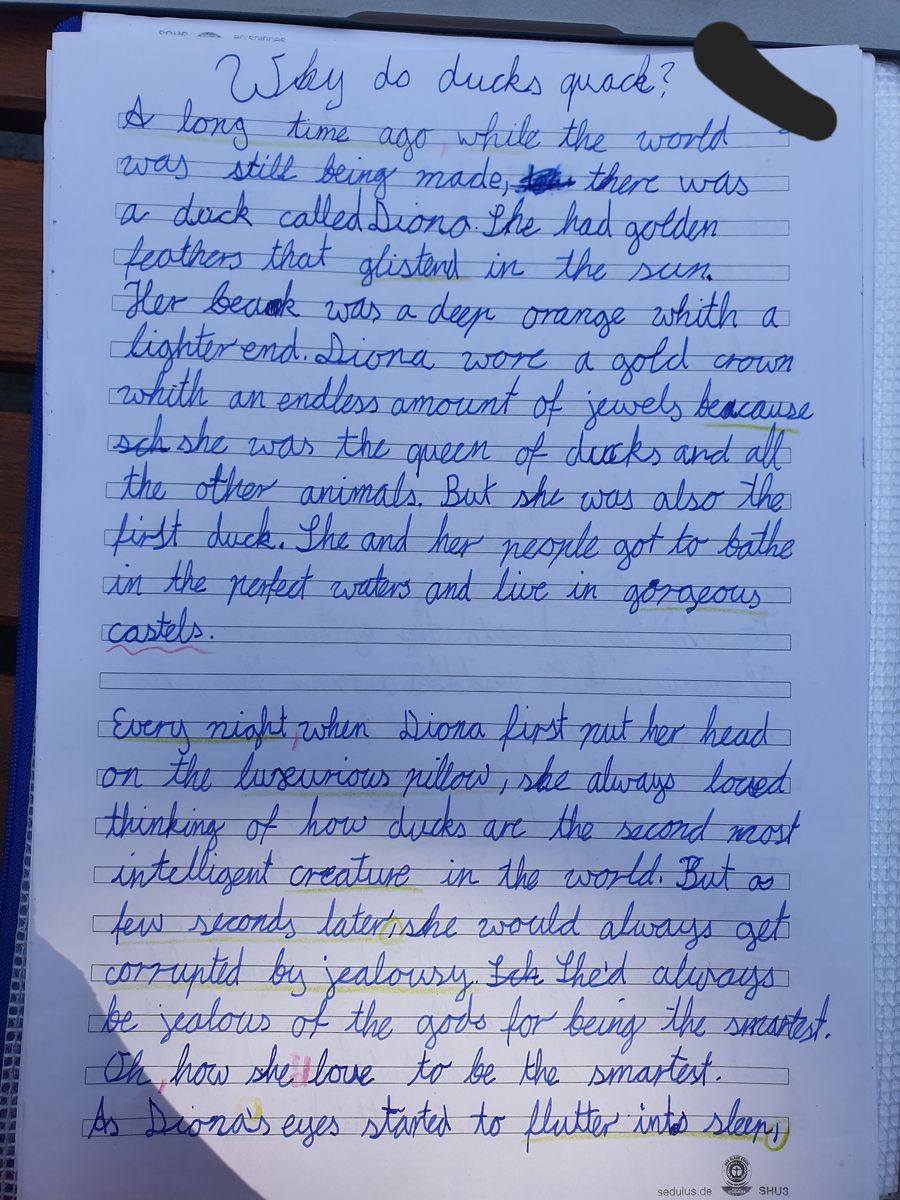 Why do ducks quack?
A long time ago, while the world
was still being made, there was
a duck called Diona. She had golden
feathers that glistend in the sun.
Her beak was a deep orange whith a
lighter end. Diona wore a gold crown
whith an endless amount of jewels beacause
sch she was the queen of ducks and all
the other animals. But she was also the
first duck. She and her people got to bathe
in the perfect waters and live in gorgeous
castels.
Every night, when Diona first put her head
on the luxeurious pillow, she always loved
thinking of how ducks are the second most
intelligent creature in the world. But a
few seconds later, she would always get
corrupted by jealousy. Sch She'd always
be jealous of the gods for being the smartest.
Oh, how she'd love to be the smartest.
As Diona's eyes started to flutter into sleep,
sedulus.de SHU3